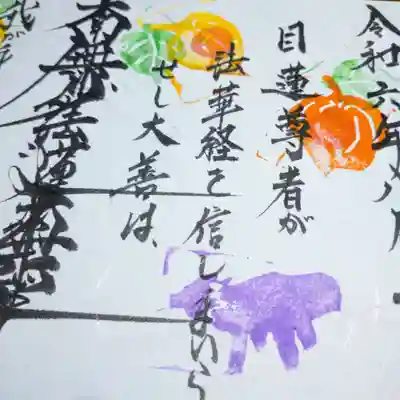 令和六年八月
目蓮尊者が
法華経を信じまいら
せし大善は、
南無妙法蓮華経